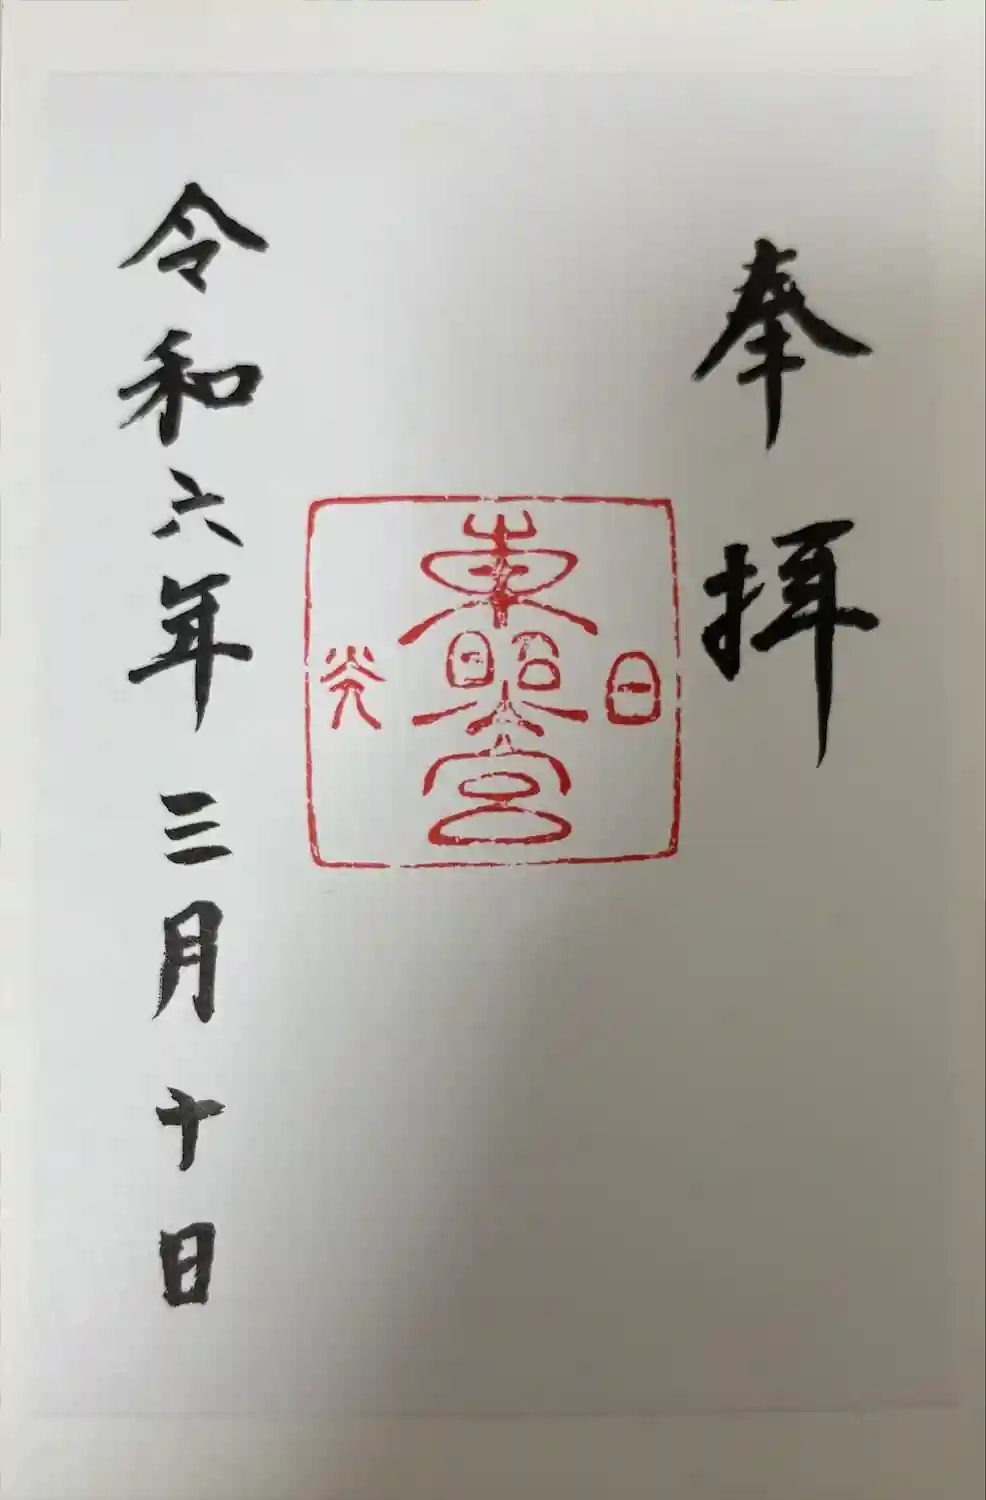 奉拝
日
東照宮
光
令和六年三月十日